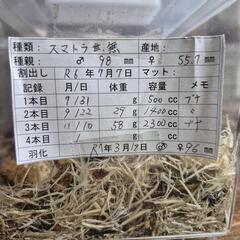 種類: スマトラ 産地:
種親: ♂ 98 mm ♀ 55.7 mm
割出し R6年7月7日 マット:
記録 月/日 体重 容量 メモ
1本目 7/31 g 500cc ブナ
2本目 9/22 29g 1400cc
3本目 11/10 58g 2300cc
4本目 / g cc
羽化 R7年3月19日 ♂ ♀ 96mm